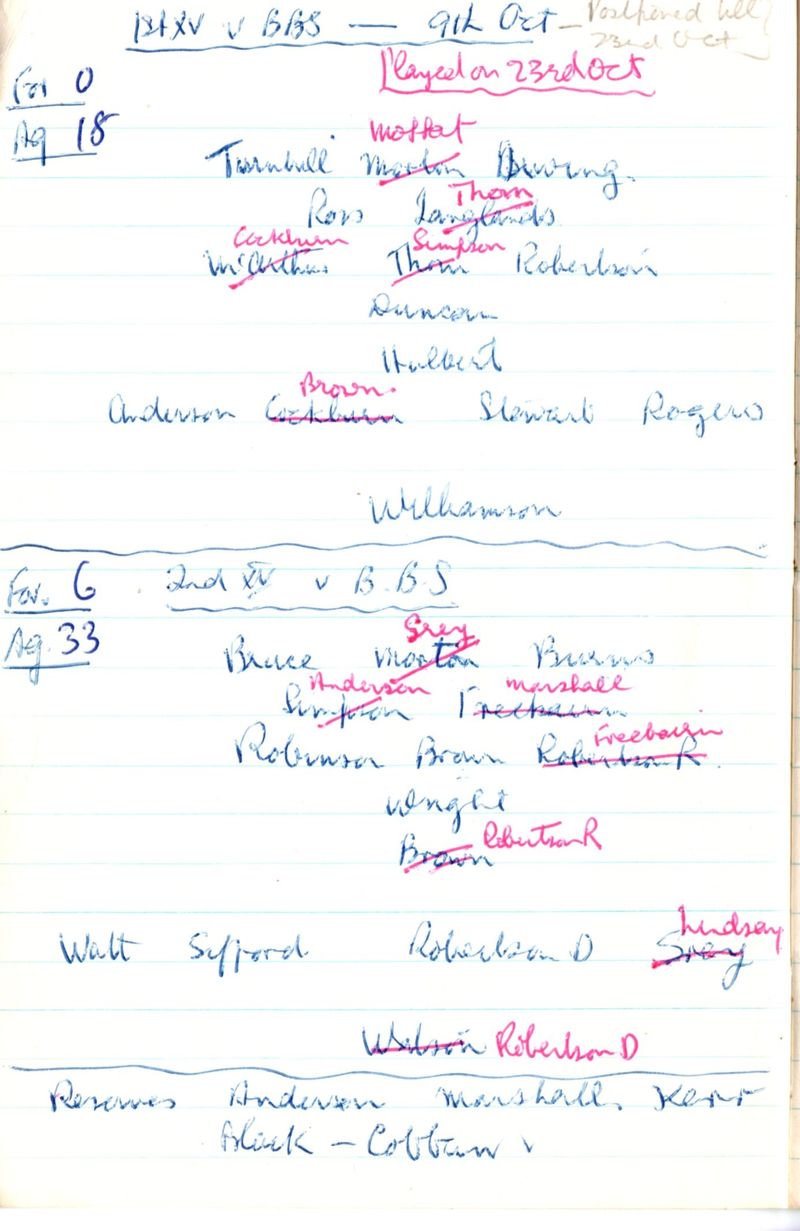 1st XV v BBS — 9th Oct — Postponed till
23rd Oct
Played on 23rd Oct
For 0
Ag 18
Moffat
Turnbull Morton Buwing.
Thom
Ross Langlands
Cockburn Simpson
McArthur Thom Robertson
Duncan
Hulbert
Brown.
Anderson Cockburn Stewart Rogers
Williamson
For. 6 2nd XV v B.B.S
Ag. 33
Grey
Bruce Morton Burns
Anderson Marshall
Simpson Freebairn
Freebairn
Robinson Brown Robertson R.
Wright
Brown Robertson R
Lindsay
Watt Gifford Robertson D Grey
Watson Robertson D
Reserves Anderson Marshall. Kerr
Black — Cobban v